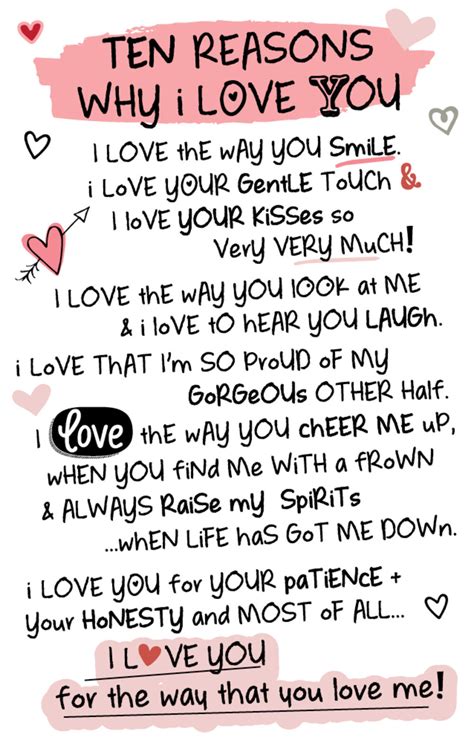 TEN REASONS
WHY i LOVE YOU
I LOVE thE WAY YOU SmiLE.
i LoVE YOUR GentLE TouCh &
I loVE YOUR KiSSes so
VerY VERY MuCH!
I LOVE thE wAY YOU lOOK at ME
& i loVE tO hEAR YOU LAUGh.
i LoVE ThAT I'm SO ProuD oF MY
GoRGEoUs OTHER Half.
I love thE wAY YOU chEER ME uP,
wHEN YOU fiNd Me WiTH a fRoWN
& ALWAYS RaiSe mY SPiRiTS
...whEN LiFE haS GoT ME DOWn.
i LOVE YOU for YOUR paTiENcE +
Your HoNESTY and MOST oF ALL...
I LOVE YOU
for the way that you love me!